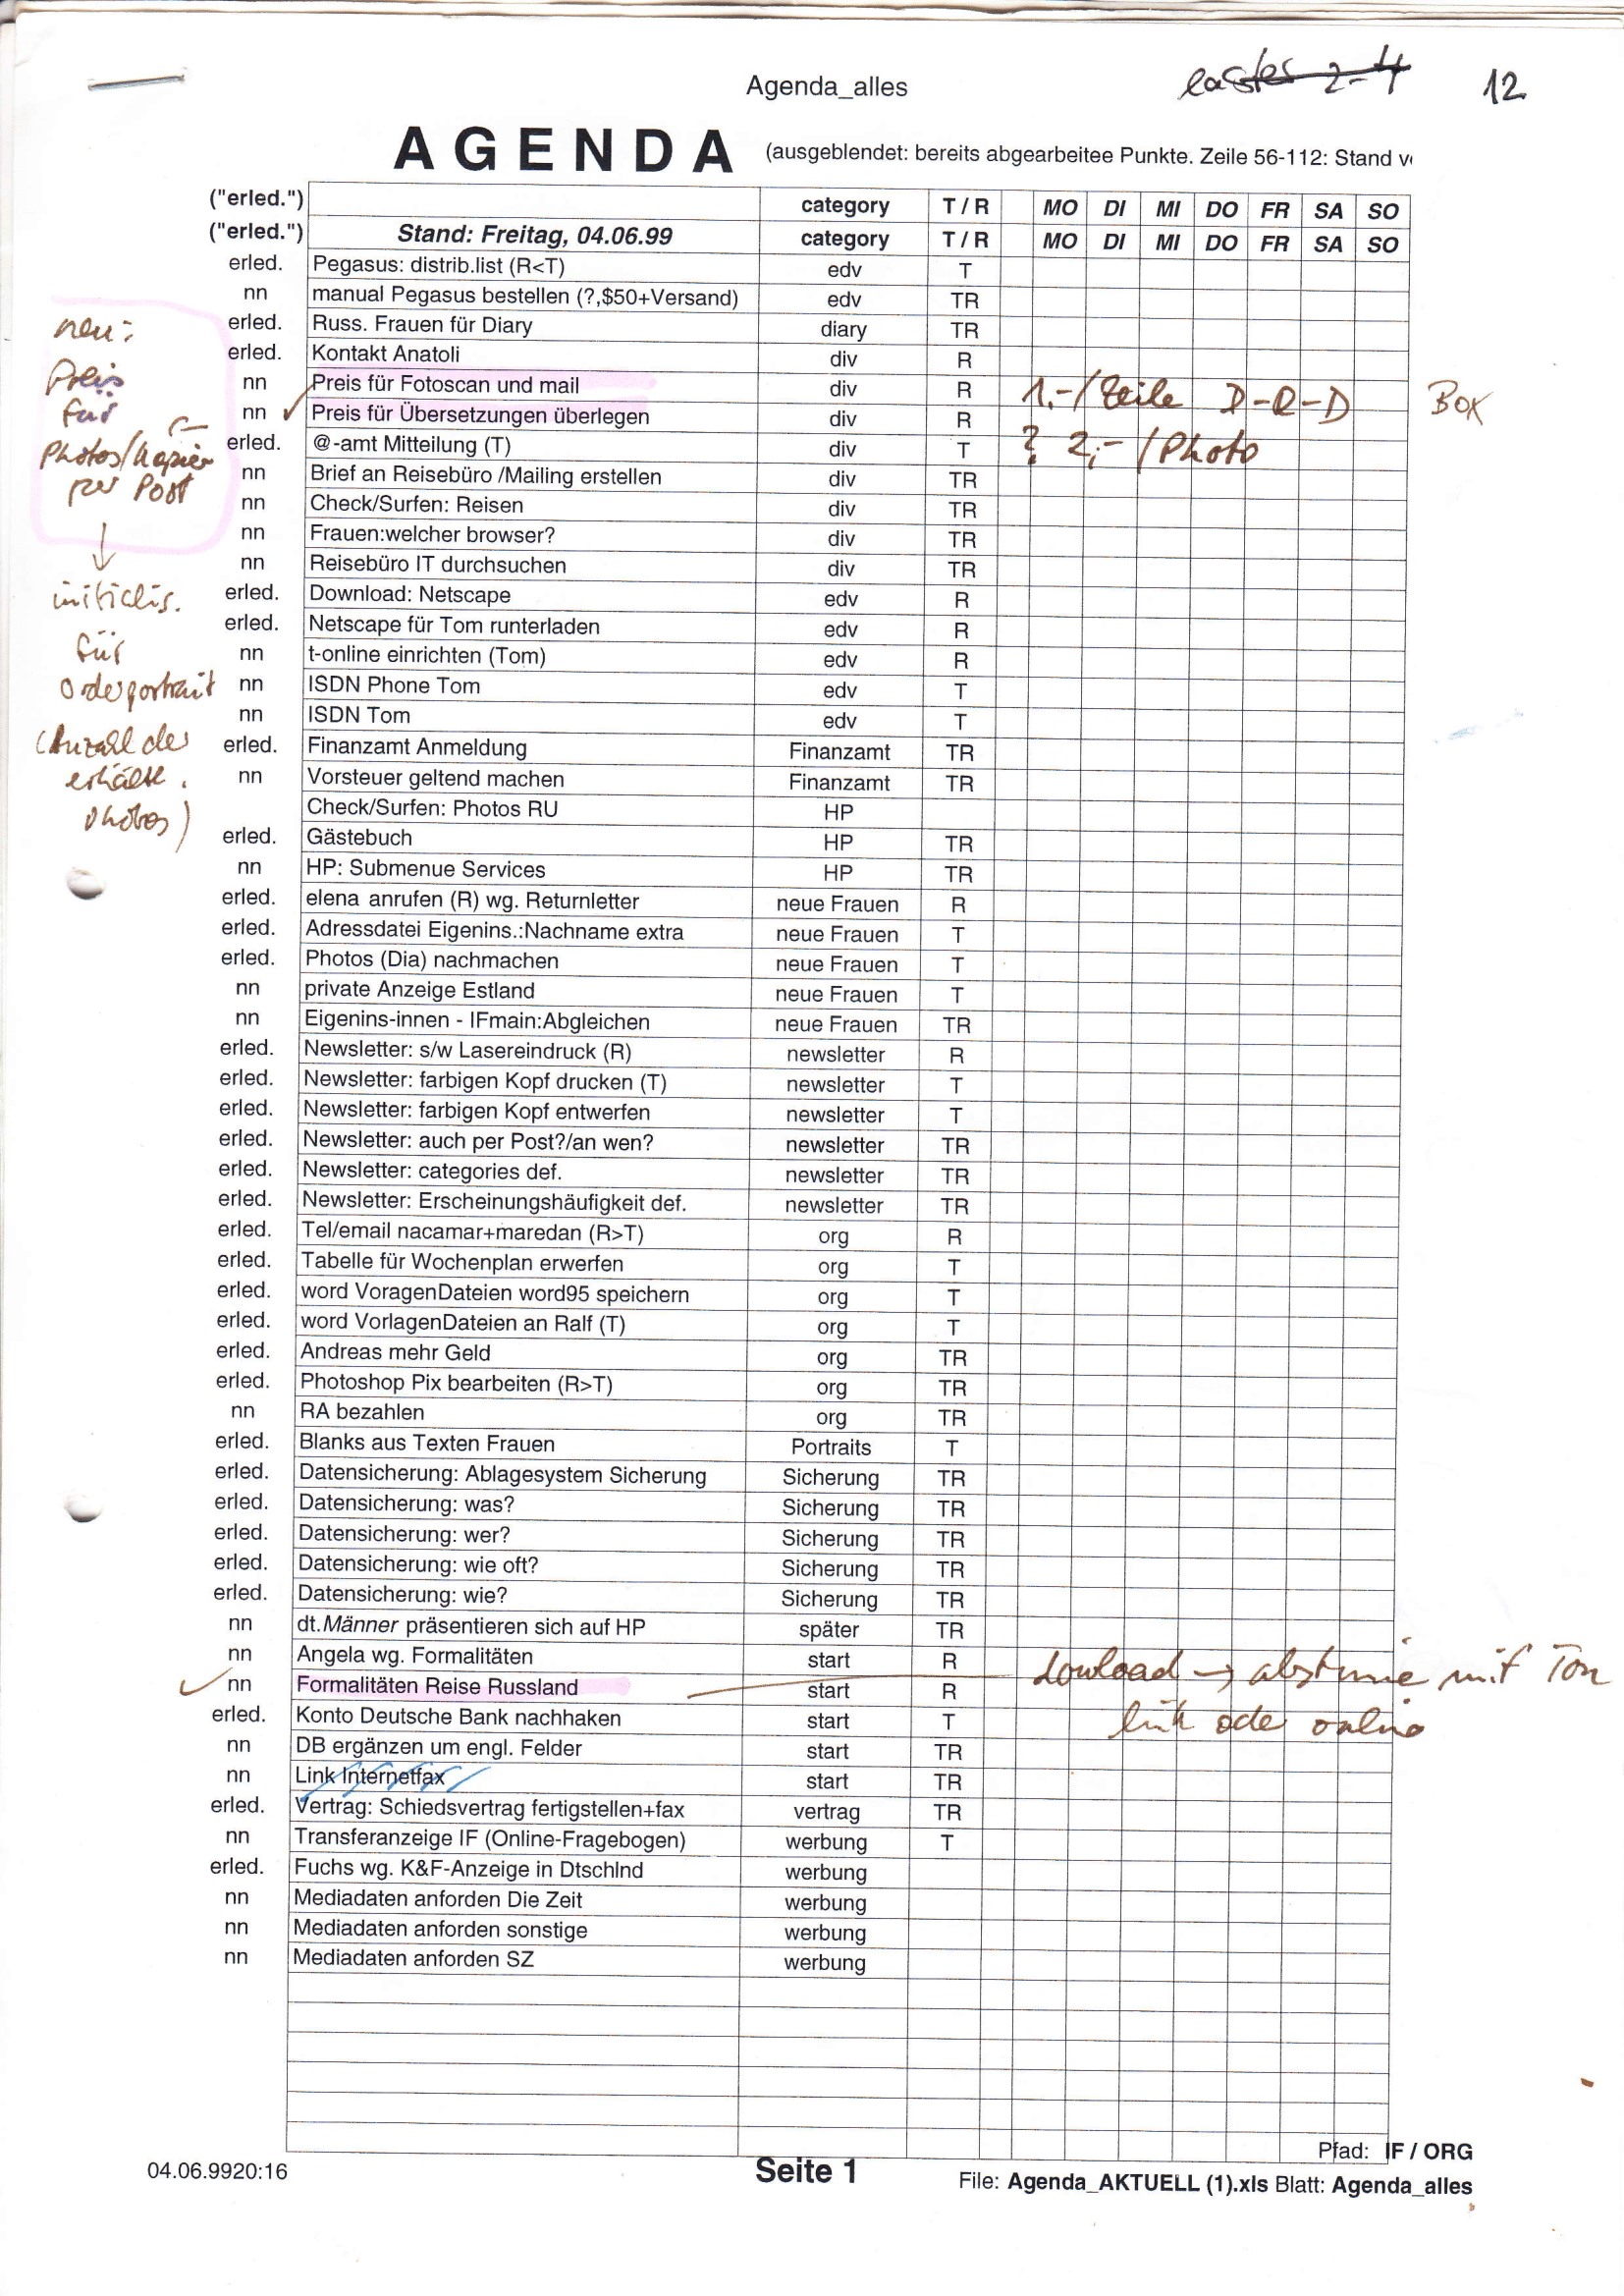 Agenda_alles
12
AGENDA (ausgeblendet: bereits abgearbeitee Punkte. Zeile 56-112: Stand v
("erled.") category T / R MO DI MI DO FR SA SO
("erled.") Stand: Freitag, 04.06.99 category T / R MO DI MI DO FR SA SO
erled. Pegasus: distrib.list (R<T) edv T
nn manual Pegasus bestellen (?,$50+Versand) edv TR
erled. Russ. Frauen für Diary diary TR
erled. Kontakt Anatoli div R
nn Preis für Fotoscan und mail div R 1,-/Zeile D-R-D Box
nn Preis für Übersetzungen überlegen div R
erled. @-amt Mitteilung (T) div T ? 2,-/Photo
nn Brief an Reisebüro /Mailing erstellen div TR
nn Check/Surfen: Reisen div TR
nn Frauen:welcher browser? div TR
nn Reisebüro IT durchsuchen div TR
erled. Download: Netscape edv R
erled. Netscape für Tom runterladen edv R
nn t-online einrichten (Tom) edv R
nn ISDN Phone Tom edv T
nn ISDN Tom edv T
erled. Finanzamt Anmeldung Finanzamt TR
nn Vorsteuer geltend machen Finanzamt TR
Check/Surfen: Photos RU HP
erled. Gästebuch HP TR
nn HP: Submenue Services HP TR
erled. elena anrufen (R) wg. Returnletter neue Frauen R
erled. Adressdatei Eigenins.:Nachname extra neue Frauen T
erled. Photos (Dia) nachmachen neue Frauen T
nn private Anzeige Estland neue Frauen T
nn Eigenins-innen - IFmain:Abgleichen neue Frauen TR
erled. Newsletter: s/w Lasereindruck (R) newsletter R
erled. Newsletter: farbigen Kopf drucken (T) newsletter T
erled. Newsletter: farbigen Kopf entwerfen newsletter T
erled. Newsletter: auch per Post?/an wen? newsletter TR
erled. Newsletter: categories def. newsletter TR
erled. Newsletter: Erscheinungshäufigkeit def. newsletter TR
erled. Tel/email nacamar+maredan (R>T) org R
erled. Tabelle für Wochenplan erwerfen org T
erled. word VoragenDateien word95 speichern org T
erled. word VorlagenDateien an Ralf (T) org T
erled. Andreas mehr Geld org TR
erled. Photoshop Pix bearbeiten (R>T) org TR
nn RA bezahlen org TR
erled. Blanks aus Texten Frauen Portraits T
erled. Datensicherung: Ablagesystem Sicherung Sicherung TR
erled. Datensicherung: was? Sicherung TR
erled. Datensicherung: wer? Sicherung TR
erled. Datensicherung: wie oft? Sicherung TR
erled. Datensicherung: wie? Sicherung TR
nn dt.Männer präsentieren sich auf HP später TR
nn Angela wg. Formalitäten start R
nn Formalitäten Reise Russland start R
mit Tom
link oder online
erled. Konto Deutsche Bank nachhaken start T
nn DB ergänzen um engl. Felder start TR
nn Link Internetfax start TR
erled. Vertrag: Schiedsvertrag fertigstellen+fax vertrag TR
nn Transferanzeige IF (Online-Fragebogen) werbung T
erled. Fuchs wg. K&F-Anzeige in Dtschlnd werbung
nn Mediadaten anforden Die Zeit werbung
nn Mediadaten anforden sonstige werbung
nn Mediadaten anforden SZ werbung
neu:
Preis
für
Photos/Kopier
per Post
initialis.
für
Orderportrait
(Anzahl der
erhält.
Photos)
Pfad: IF / ORG
04.06.9920:16 Seite 1 File: Agenda_AKTUELL (1).xls Blatt: Agenda_alles